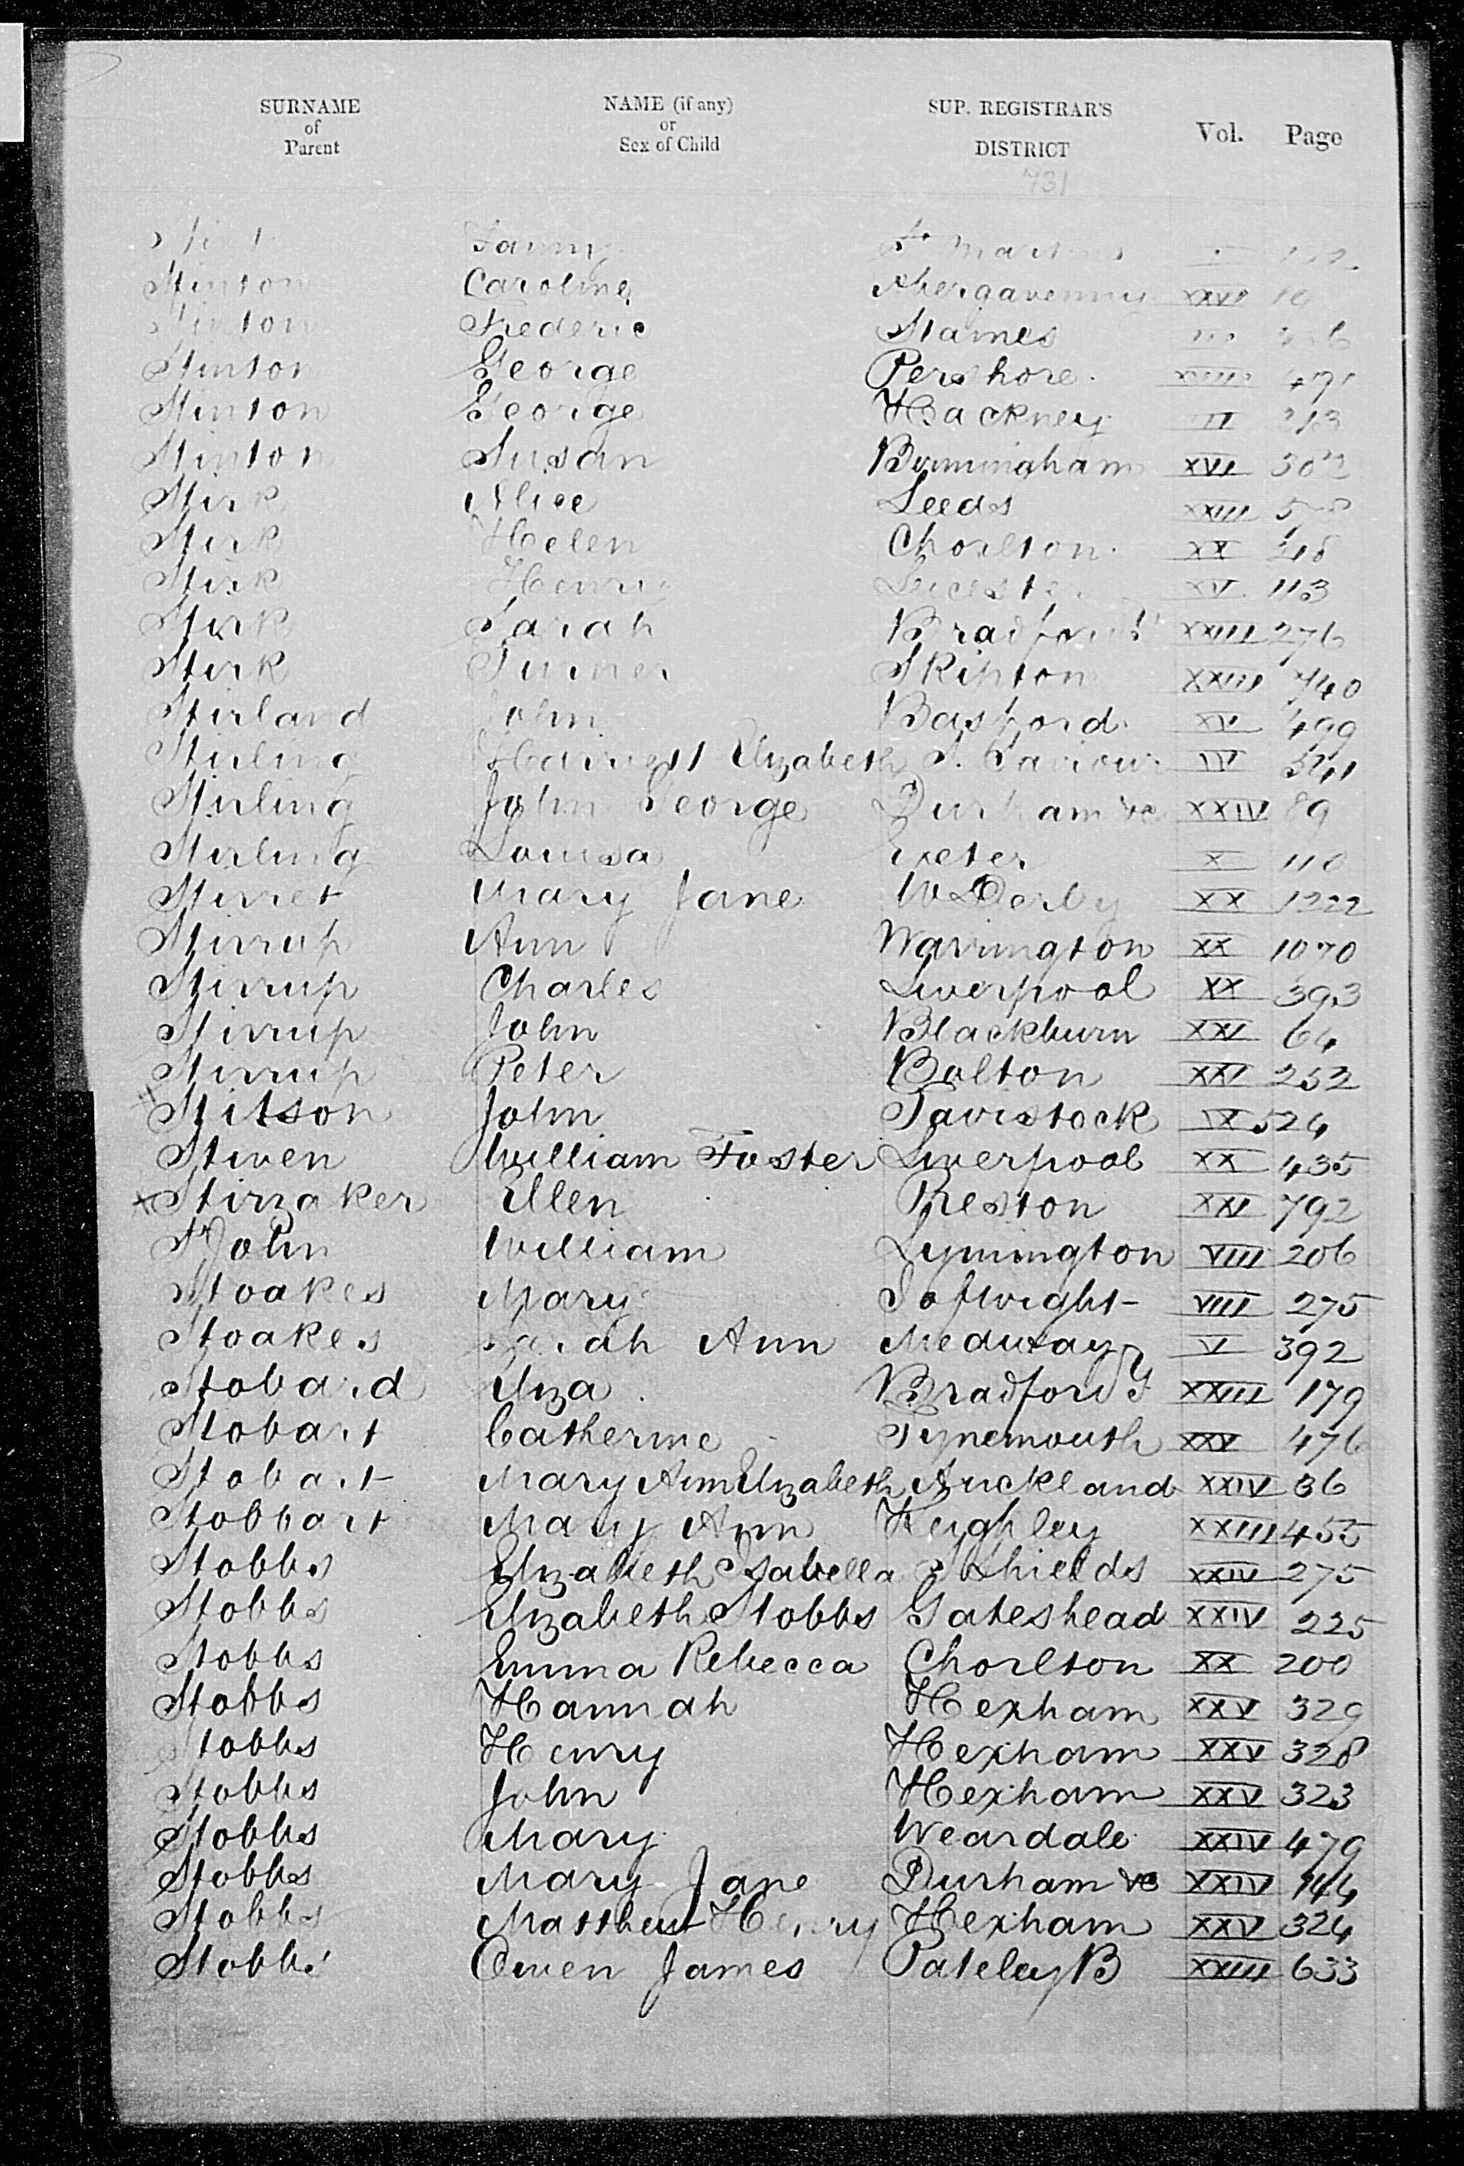 SURNAME of Parent NAME (if any) or Sex of Child SUP. REGISTRAR'S DISTRICT Vol. Page
731
Fanny St Martins
Stinton Caroline Abergavenny XXVI
Stinton Frederic Staines III
Stinton George Pershore XVIII 491
Stinton George Hackney III 213
Stinton Susan Birmingham XVI
Stirk Alice Leeds XXIII
Stirk Helen Chorlton XX 218
Stirk Henry Leicester XV 113
Stirk Sarah Bradford Y XXIII 276
Stirk Turner Skipton XXIII 740
Stirland John Basford XV 499
Stirling Harriett Elizabeth S. Saviour IV 541
Stirling John George Durham &c XXIV 89
Stirling Louisa Exeter X 110
Stirret Mary Jane W Derby XX 1222
Stirrup Ann Warrington XX 1070
Stirrup Charles Liverpool XX 393
Stirrup John Blackburn XXI 64
Stirrup Peter Bolton XXI 252
Stitson John Tavistock IX 524
Stiven William Foster Liverpool XX 435
x Stirzaker Ellen Preston XXI 792
St John William Lymington VIII 206
Stoakes Mary I of Wight VIII 275
Stoakes Sarah Ann Medway V 392
Stobard Eliza Bradford Y XXIII 179
Stobart Catherine Tynemouth XXV 476
Stobart Mary Ann Elizabeth Auckland XXIV 36
Stobbart Mary Ann Keighley XXIII 455
Stobbs Elizabeth Isabella S Shields XXIV 275
Stobbs Elizabeth Stobbs Gateshead XXIV 225
Stobbs Emma Rebecca Chorlton XX 200
Stobbs Hannah Hexham XXV 329
Stobbs Henry Hexham XXV 328
Stobbs John Hexham XXV 323
Stobbs Mary Weardale XXIV 479
Stobbs Mary Jane Durham &c XXIV 144
Stobbs Matthew Henry Hexham XXV 324
Stobbs Owen James Pateley B XXIII 633